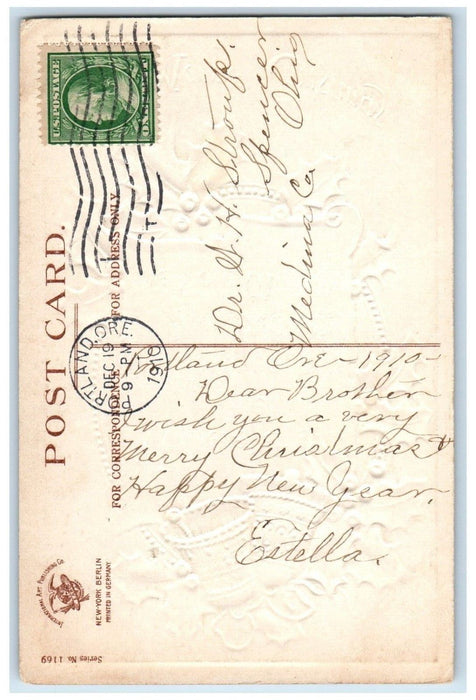 POST CARD.
FOR CORRESPONDENCE
FOR ADDRESS ONLY
U.S. POSTAGE
PORTLAND, ORE.
DEC 19
9 PM
1910
Portland Ore - 1910 -
Dear Brother
I wish you a very
Merry Christmas &
Happy New Year.
Estella.
Dr. G. H. Stroup.
Spencer
Medina Co Ohio
INTERNATIONAL ART PUBLISHING CO.
NEW-YORK BERLIN
PRINTED IN GERMANY
Series No 1169